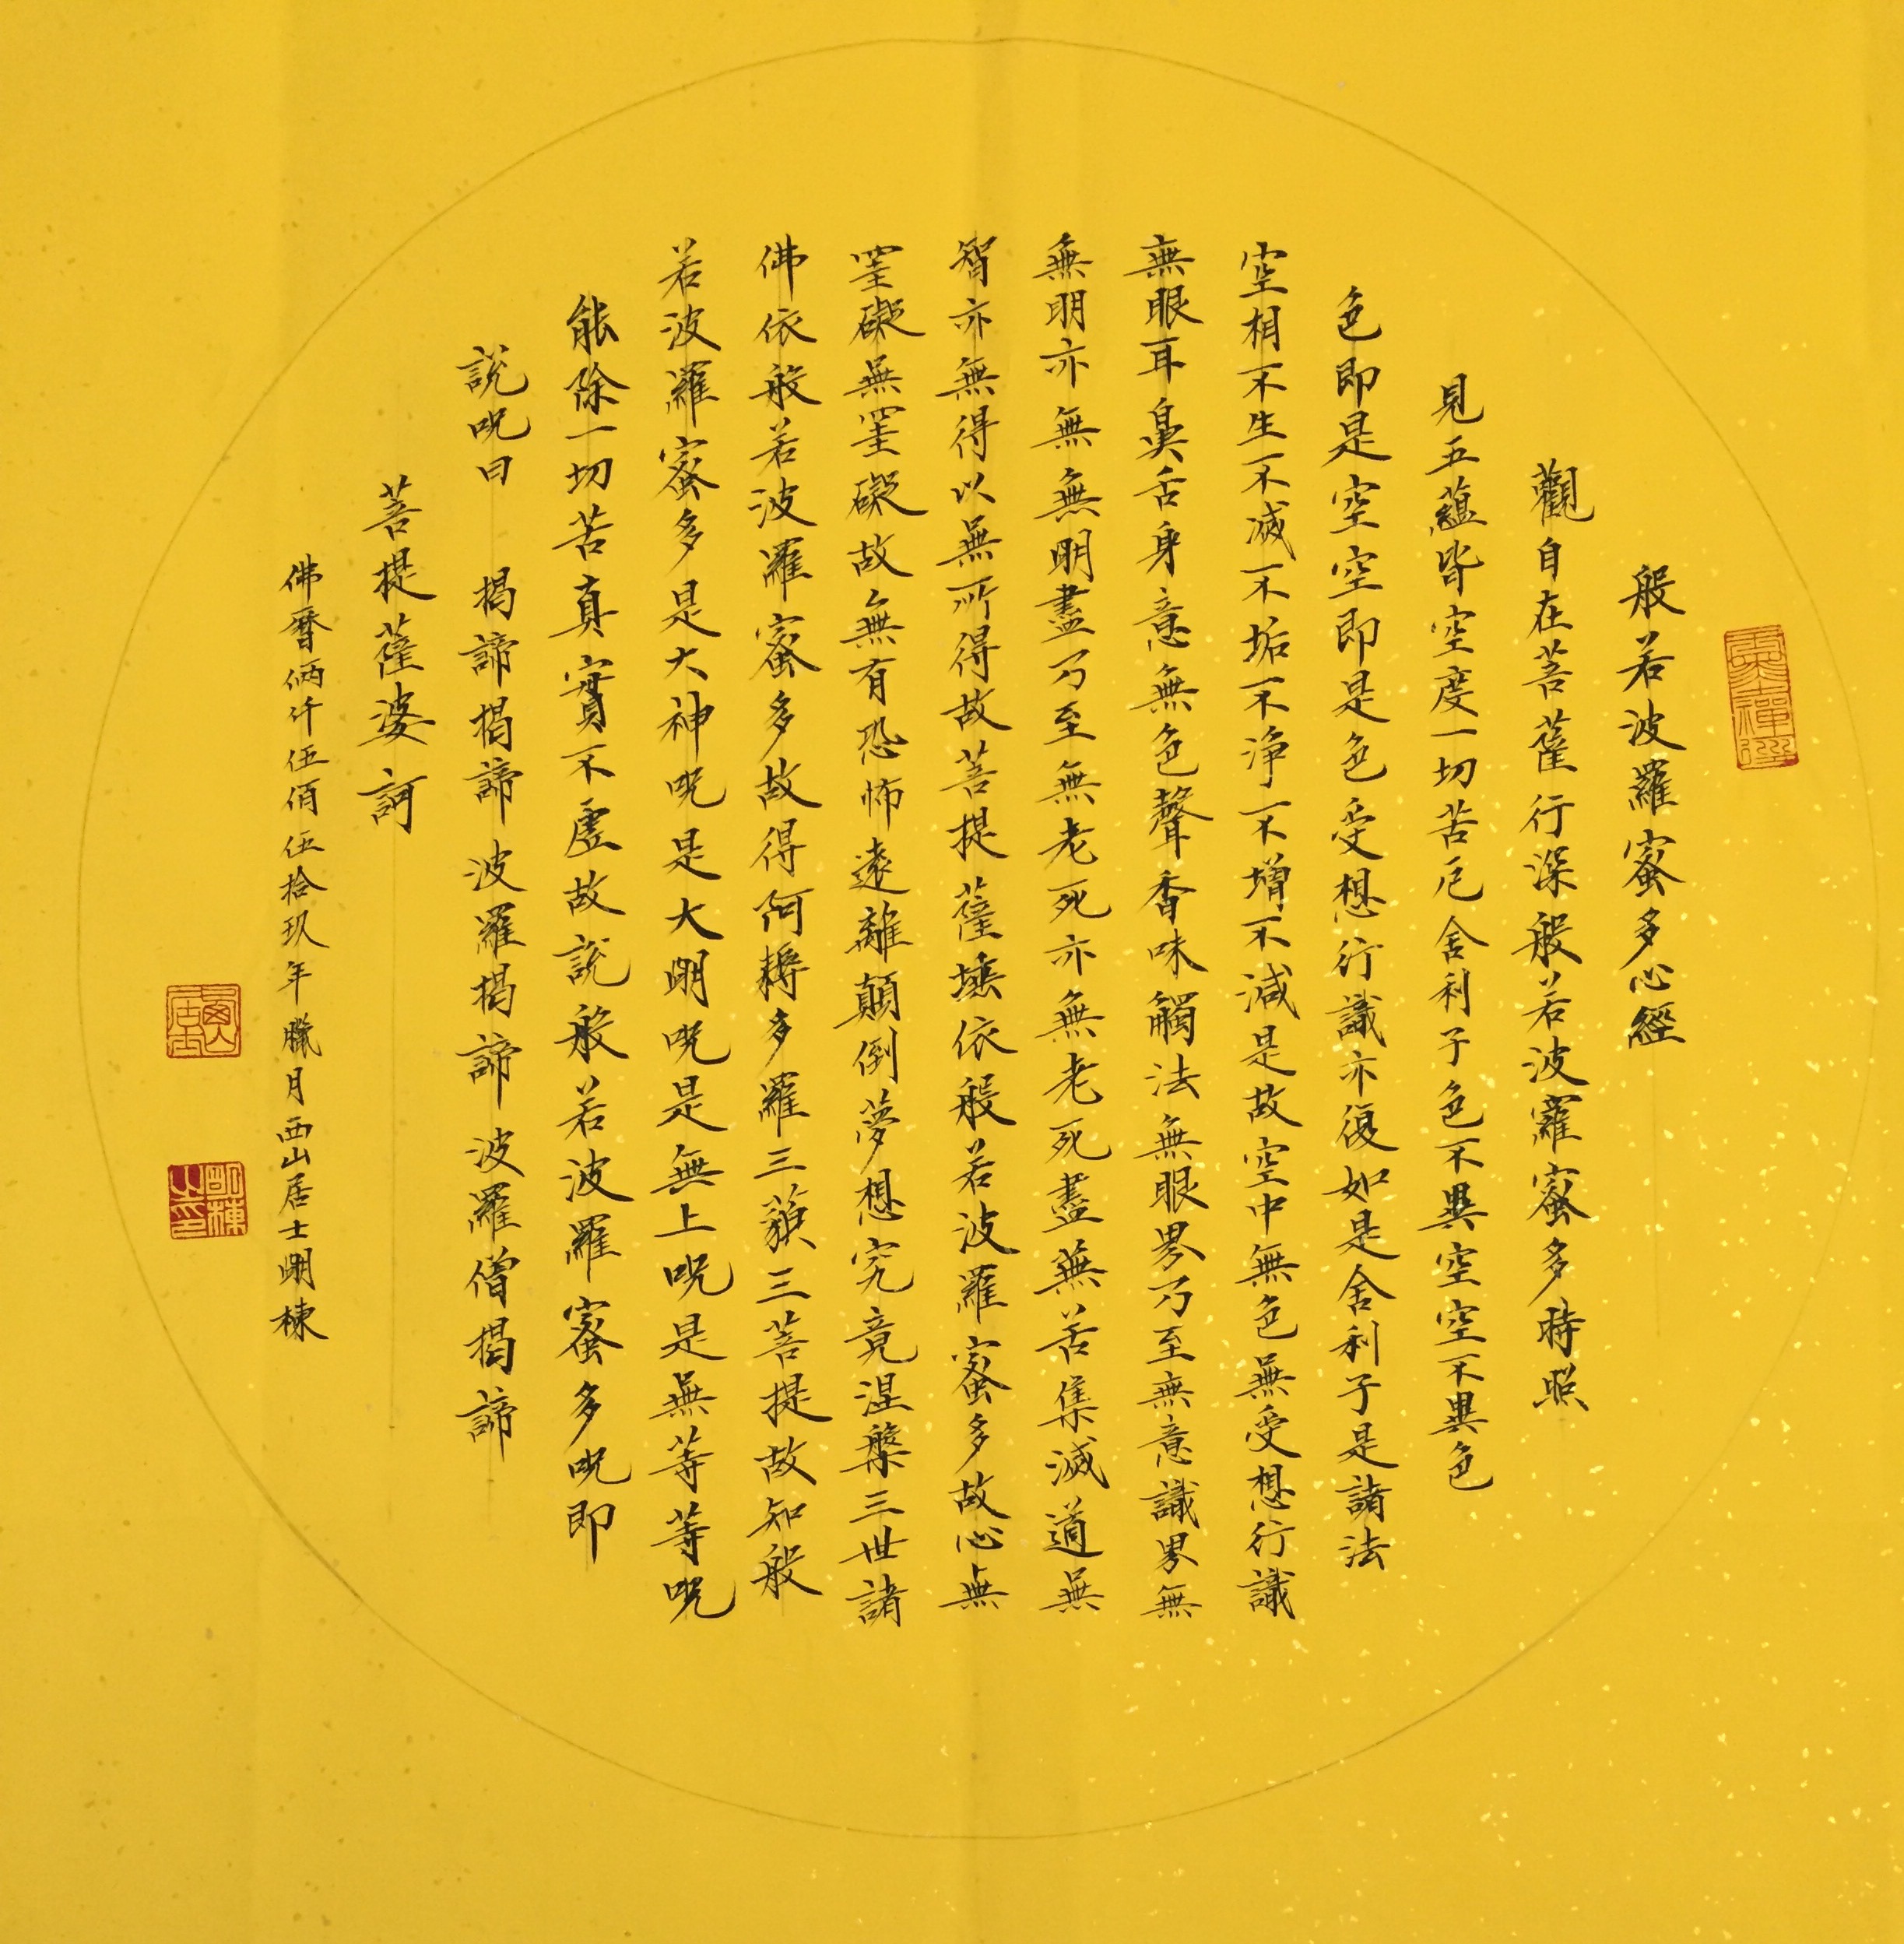 般若波羅蜜多心經
觀自在菩薩行深般若波羅蜜多時照
見五蘊皆空度一切苦厄舍利子色不異空空不異色
色即是空空即是色受想行識亦復如是舍利子是諸法
空相不生不滅不垢不淨不增不減是故空中無色無受想行識
無眼耳鼻舌身意無色聲香味觸法無眼界乃至無意識界無
無明亦無無明盡乃至無老死亦無老死盡無苦集滅道無
智亦無得以無所得故菩提薩埵依般若波羅蜜多故心無
罣礙無罣礙故無有恐怖遠離顛倒夢想究竟涅槃三世諸
佛依般若波羅蜜多故得阿耨多羅三藐三菩提故知般
若波羅蜜多是大神咒是大明咒是無上咒是無等等咒
能除一切苦真實不虛故說般若波羅蜜多咒即
說咒曰 揭諦揭諦波羅揭諦波羅僧揭諦
菩提薩婆訶
佛曆倆仟伍佰伍拾玖年臘月西山居士明棟